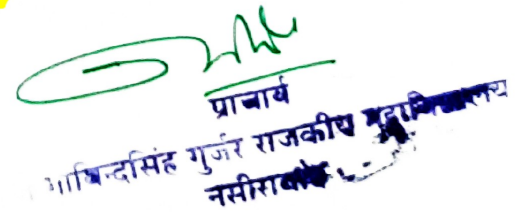 प्राचार्य
गोविन्दसिंह गुर्जर राजकीय महाविद्यालय
नसीराबाद